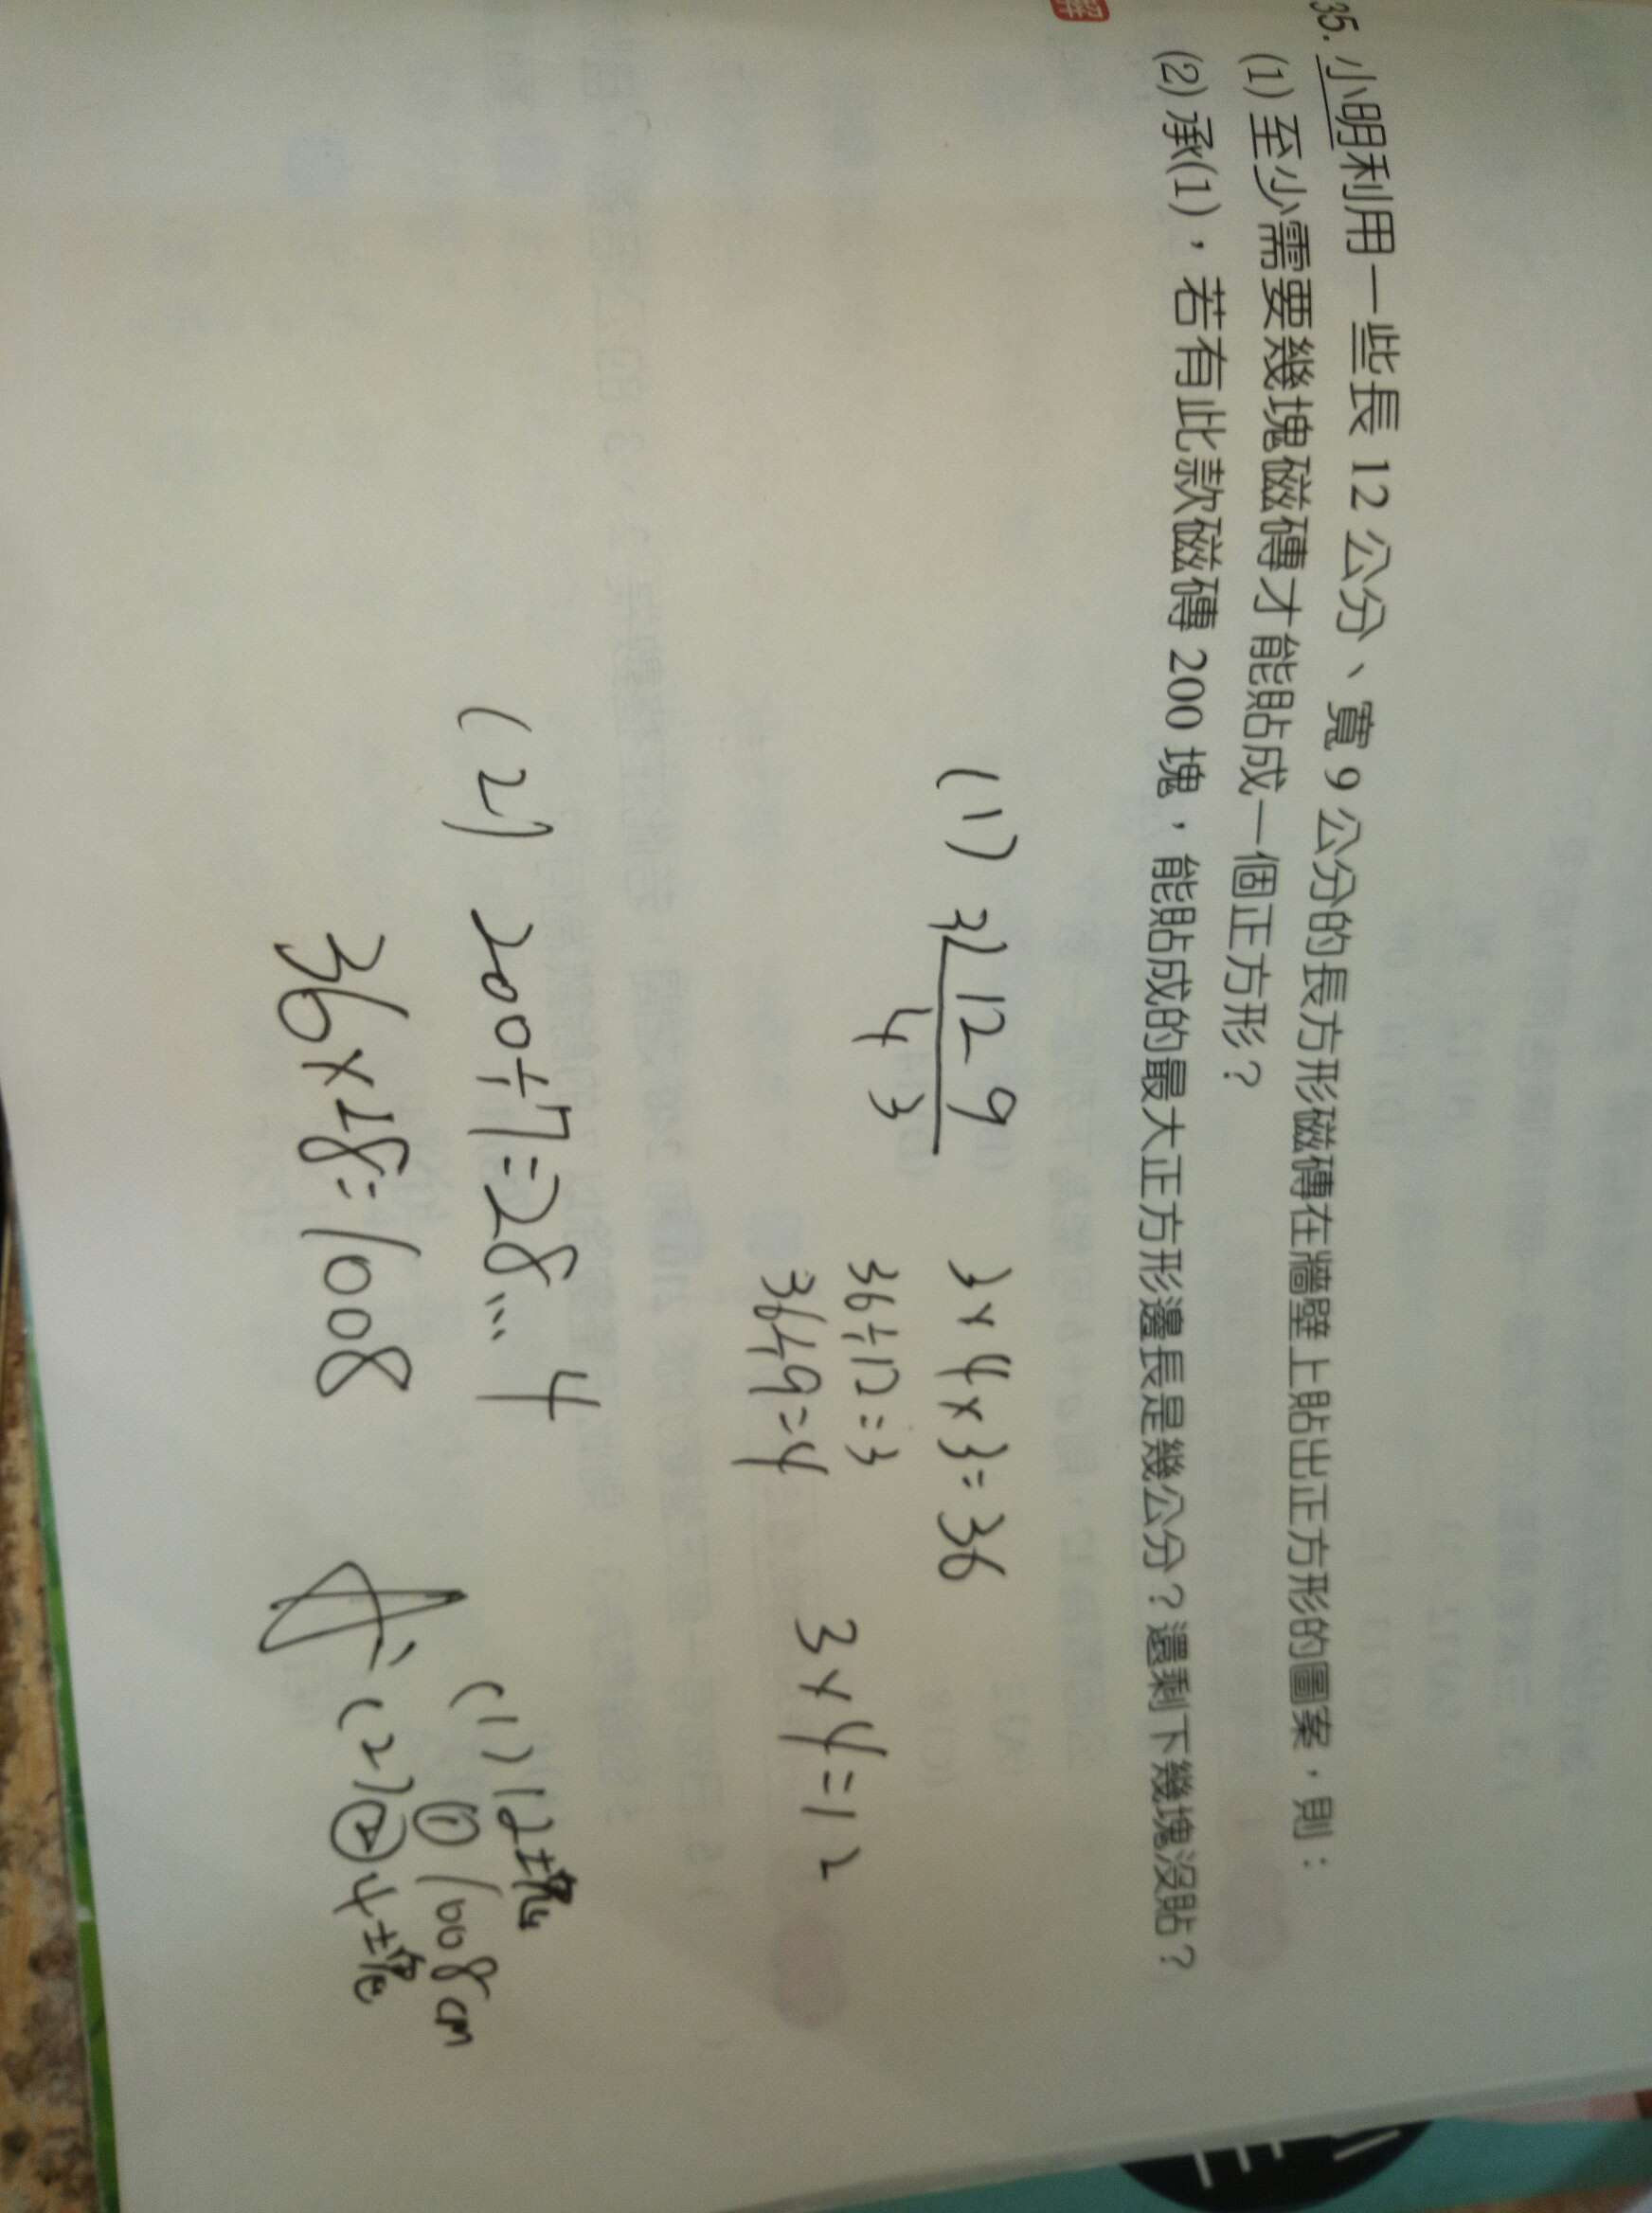 35. 小明利用一些長 12 公分、寬 9 公分的長方形磁磚在牆壁上貼出正方形的圖案，則：
(1) 至少需要幾塊磁磚才能貼成一個正方形？
(2) 承(1)，若有此款磁磚 200 塊，能貼成的最大正方形邊長是幾公分？還剩下幾塊沒貼？
解
(1) 3 12 9
4 3
3×4×3=36
36÷12=3
36÷9=4
3×4=12
(2) 200÷7=28…4
36×28=1008
A：(1) 12塊
(2) ① 1008cm
② 4塊